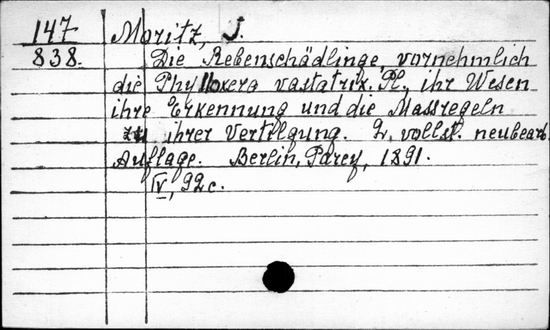 147 Moritz, J.
838. Die Rebenschädlinge, vornehmlich
die Phylloxera vastatrix. Pl., ihr Wesen
ihre Erkennung und die Massregeln
zu ihrer Vertilgung. 2. vollst. neubearb.
Auflage. Berlin, Parey, 1891.
IV, 92 c.